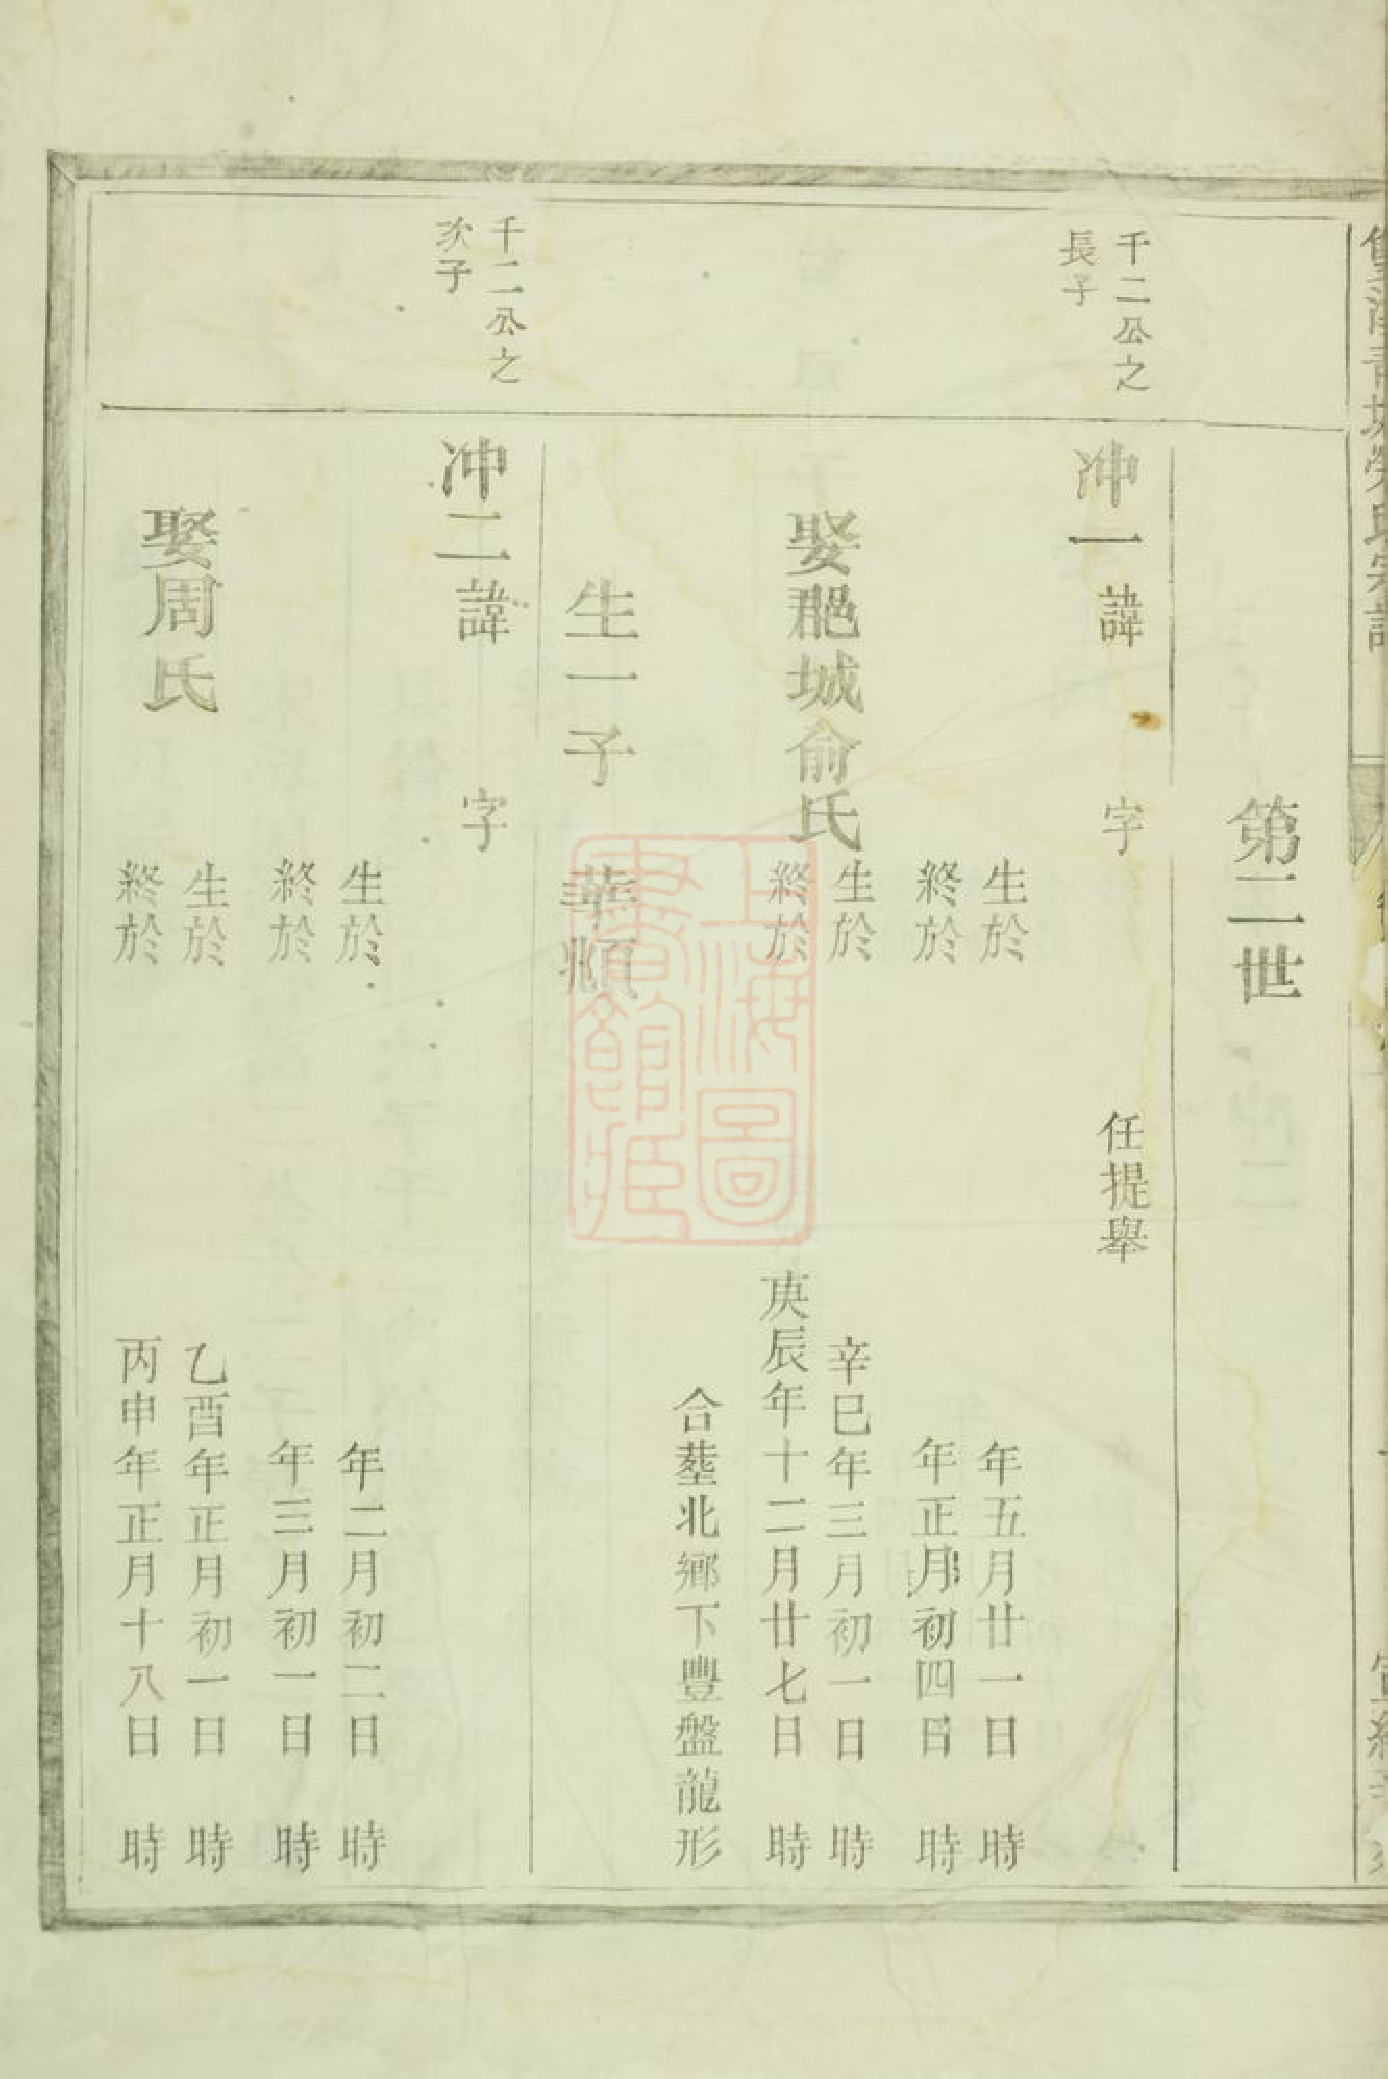 第二世
千二公之
長子
冲一諱 字 任提舉
生於 年五月廿一日 時
終於 年正月初四日 時
娶郡城俞氏
生於 辛巳年三月初一日 時
終於 庚辰年十二月廿七日 時
合塟北鄉下豐盤龍形
生一子 華頫
千二公之
次子
冲二諱 字
生於 年二月初二日 時
終於 年三月初一日 時
娶周氏
生於 乙酉年正月初一日 時
終於 丙申年正月十八日 時
上海圖
書館藏